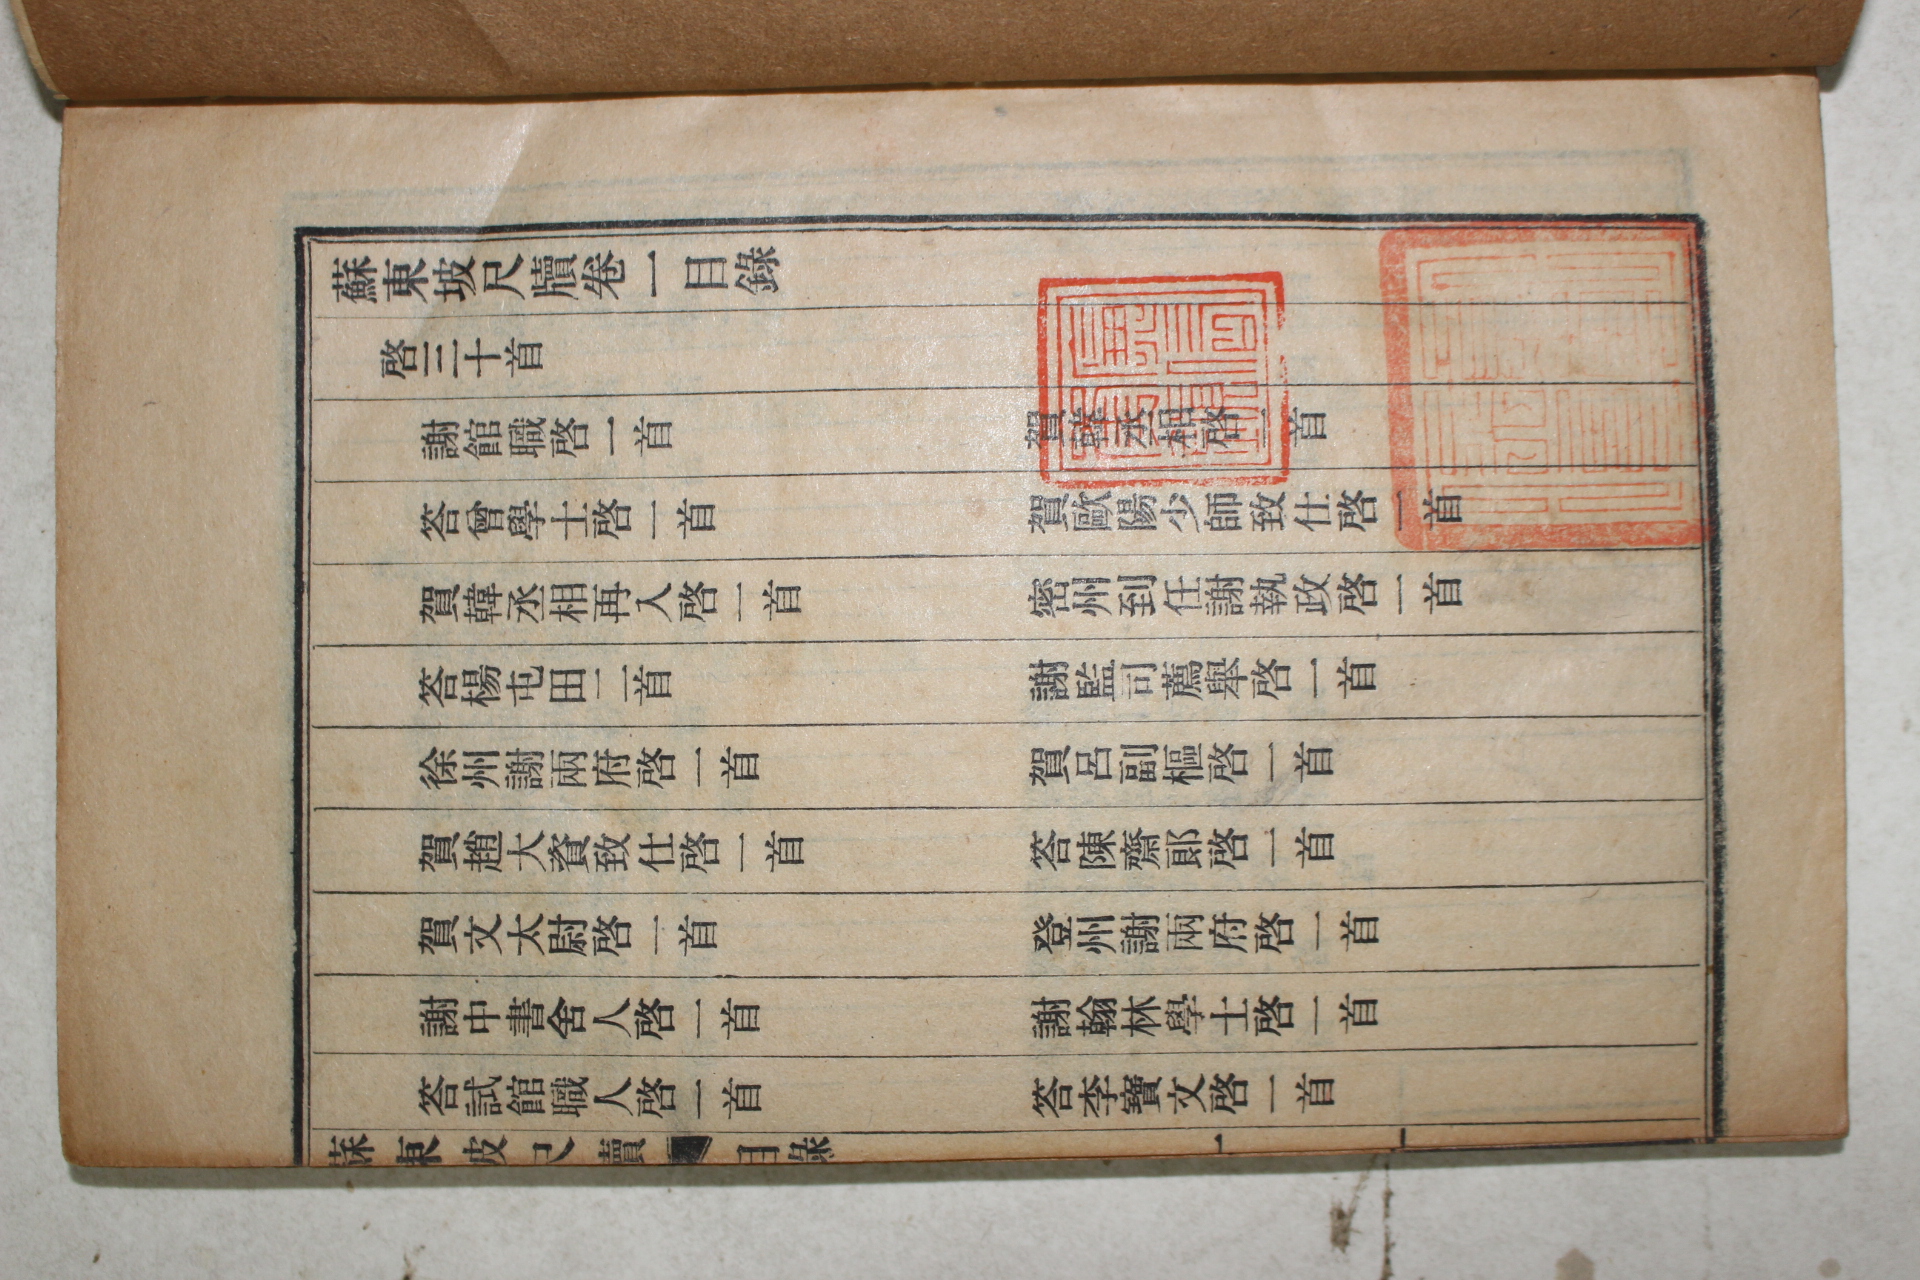 蘇東坡尺牘卷一目錄
啓三十首
謝館職啓一首
賀韓丞相啓一首
答曾學士啓一首
賀歐陽少師致仕啓一首
賀韓丞相再入啓一首
密州到任謝執政啓一首
答楊屯田二首
謝監司薦舉啓一首
徐州謝兩府啓一首
賀呂副樞啓一首
賀趙大資致仕啓一首
答陳齋郎啓一首
賀文太尉啓一首
登州謝兩府啓一首
謝中書舍人啓一首
謝翰林學士啓一首
答試館職人啓一首
答李寶文啓一首
蘇東坡尺牘 目錄 一